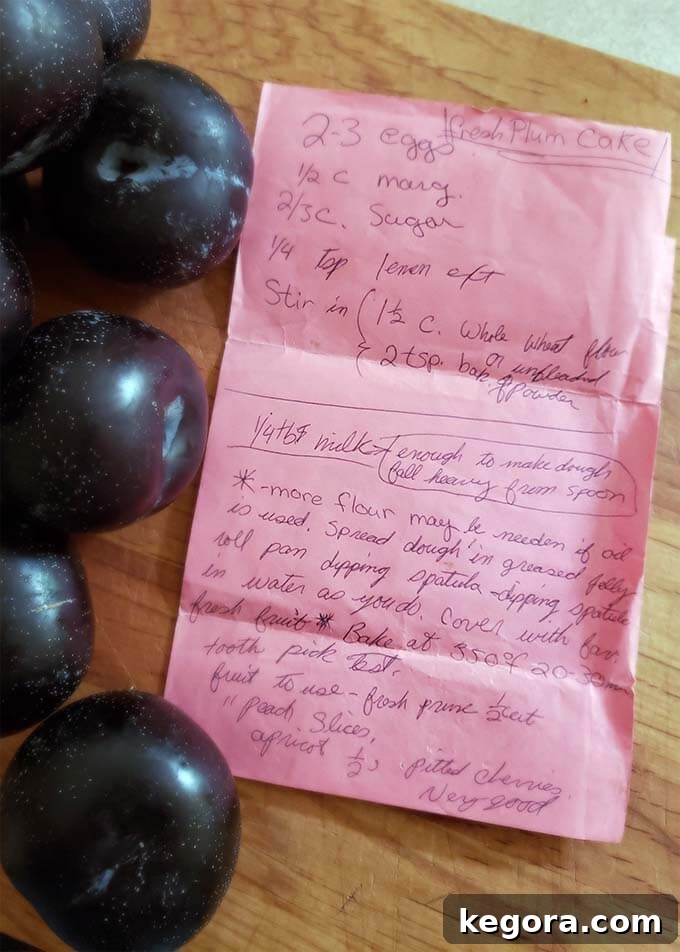 fresh Plum Cake
2-3 eggs
1/2 c marg.
2/3 c. Sugar
1/4 tsp lemon ext
Stir in { 1 1/2 c. whole wheat flour
or unbleached
{ 2 tsp. bak. powder
1/4 tbs milk - enough to make dough
fall heavy from spoon
* - more flour may be needen if oil
is used. Spread dough in greased jelly
roll pan dipping spatula - dipping spatula
in water as you do. Cover with fav.
fresh fruit * Bake at 350°F 20-30 min
tooth pick test.
fruit to use - fresh prune 1/2 cut
" peach slices,
apricot 1/2, pitted cherries.
Very good
kegora.com